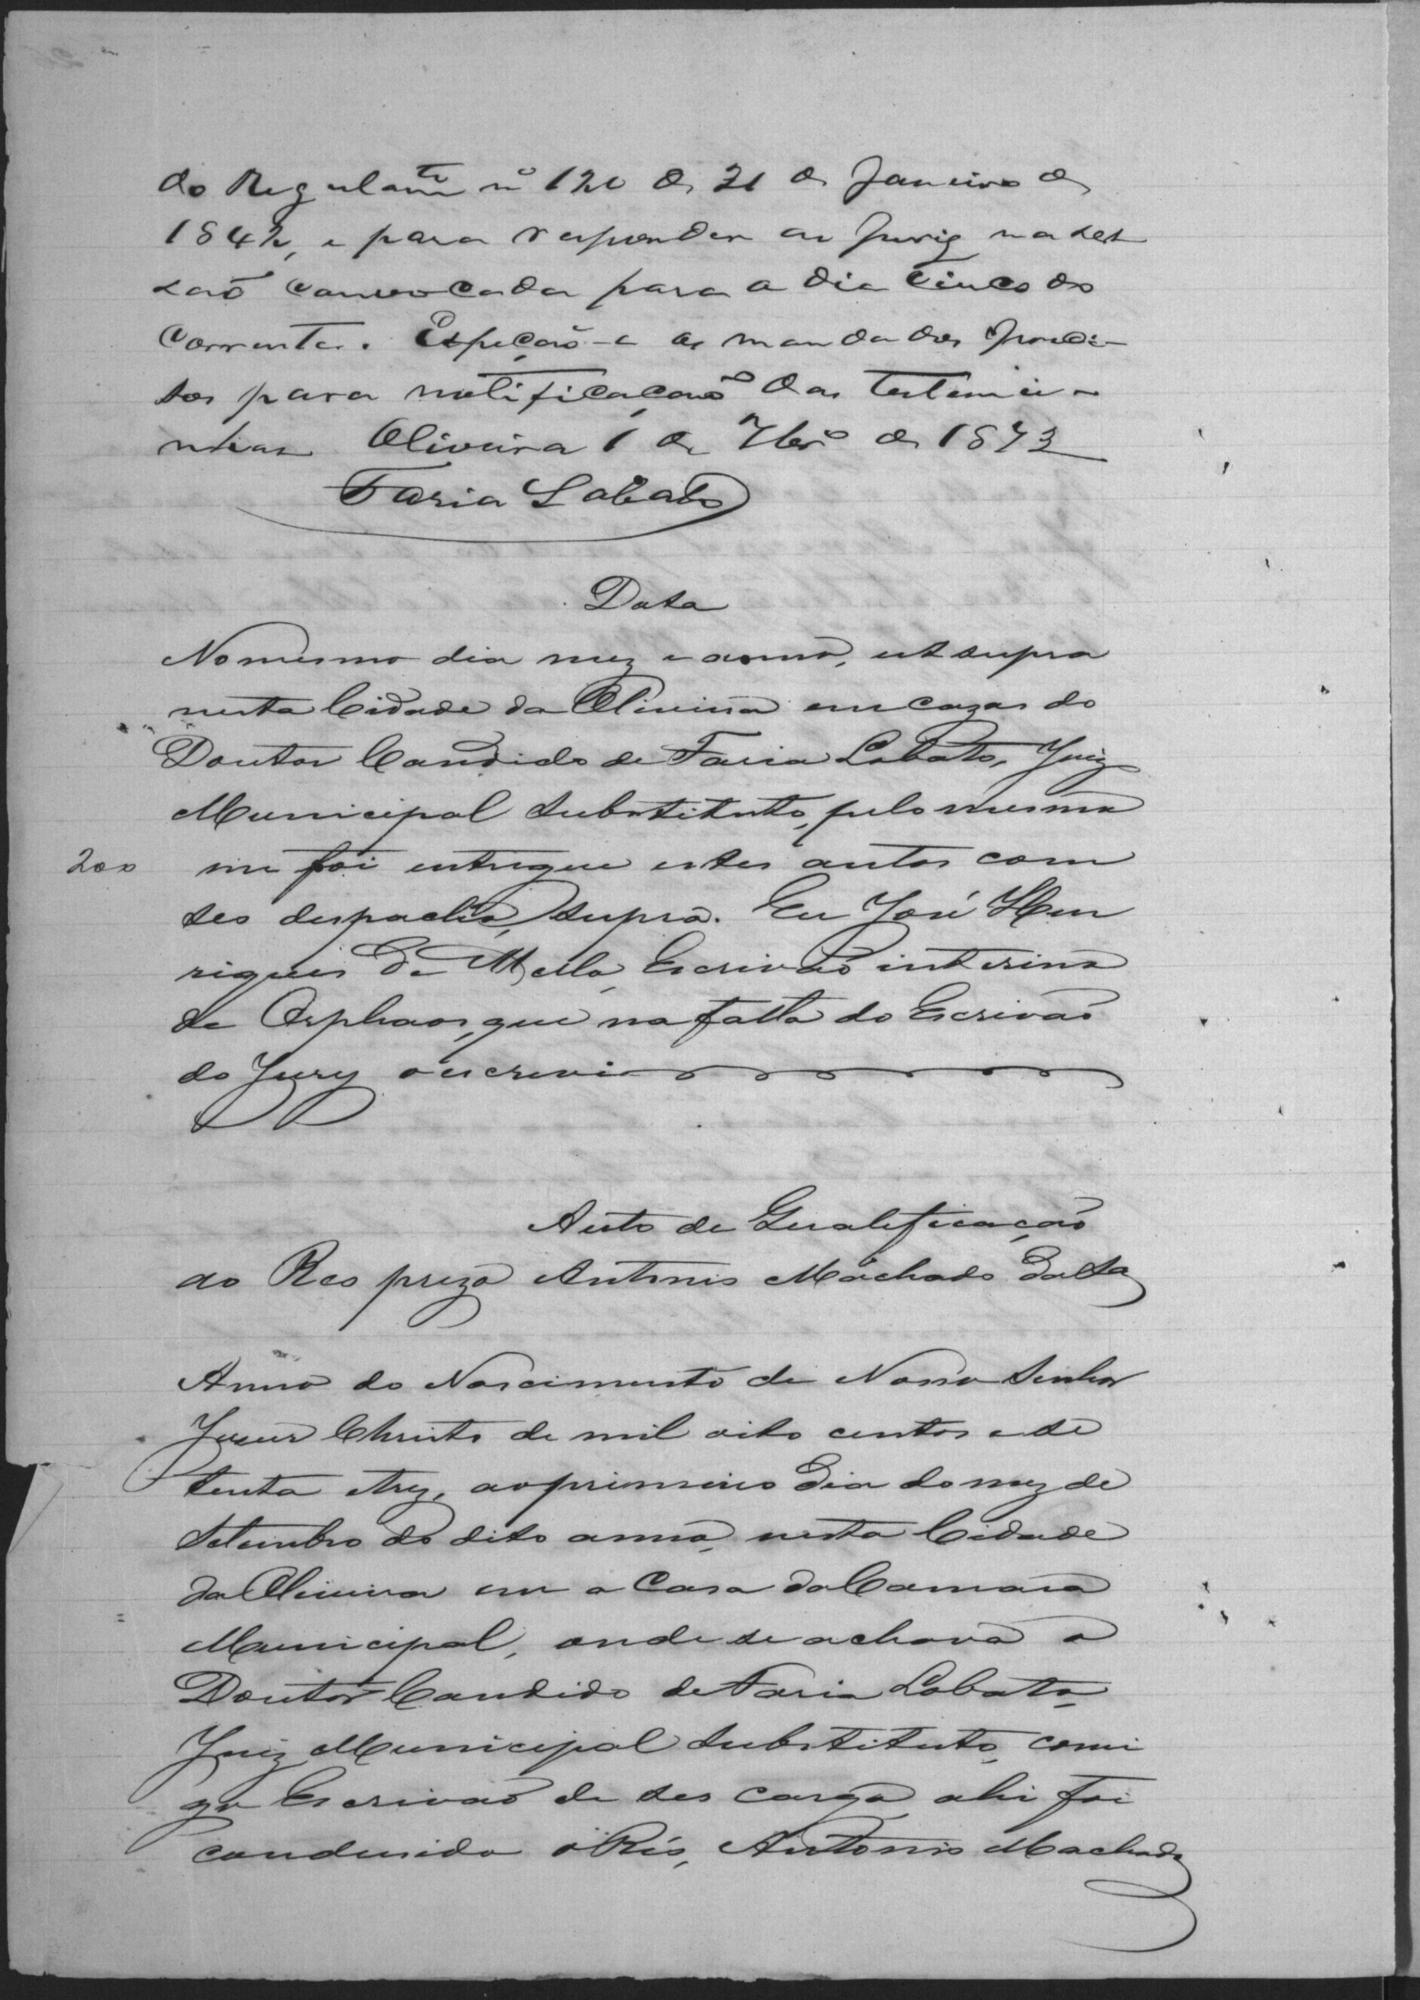 do Regulam.to nº 120 de 31 de Janeiro de
1842, e para responder ao Jury na ses
saõ convocada para o dia cinco do
corrente. Expeçaõ-se os mandados preci-
sos para notificaçaõ das testemu-
nhas Oliveira 1 de 7br.o de 1873
Faria Lobato
Data
No mesmo dia mez e anno, ut supra
nesta Cidade da Oliveira em cazas do
Doutor Candido de Faria Lobato, Juiz
Municipal Substituto, pelo mesmo
200 me foi entregue estes autos com
seo despacho, supra. Eu José Hen
riques de Mello, Escrivaõ interino
de Orphaos, que na falta do Escrivaõ
do Jury o escrevi
Auto de Qualificaçaõ
ao Reo prezo Antonio Machado da Sa
Anno do Nascimento de Nosso Senhor
Jesus Christo de mil oito centos e se
tenta e trez, ao primeiro dia do mez de
Setembro do dito anno, nesta Cidade
da Oliveira em a Casa da Camara
Municipal, onde se achava o
Doutor Candido de Faria Lobato,
Juiz Municipal Substituto, comi
go Escrivaõ de seo cargo, ahi foi
condusido o Réo, Antonio Machado